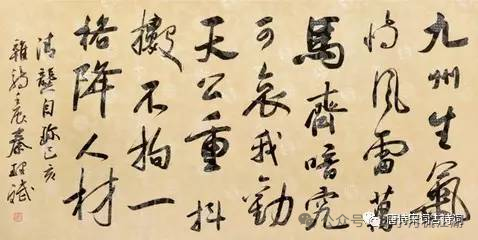 九州生氣
恃风雷萬
馬齊喑究
可哀我勸
天公重抖
擻不拘一
格降人材
清龔自珍己亥
雜詩壬辰秦理斌
公众号
唐诗宋词古诗词